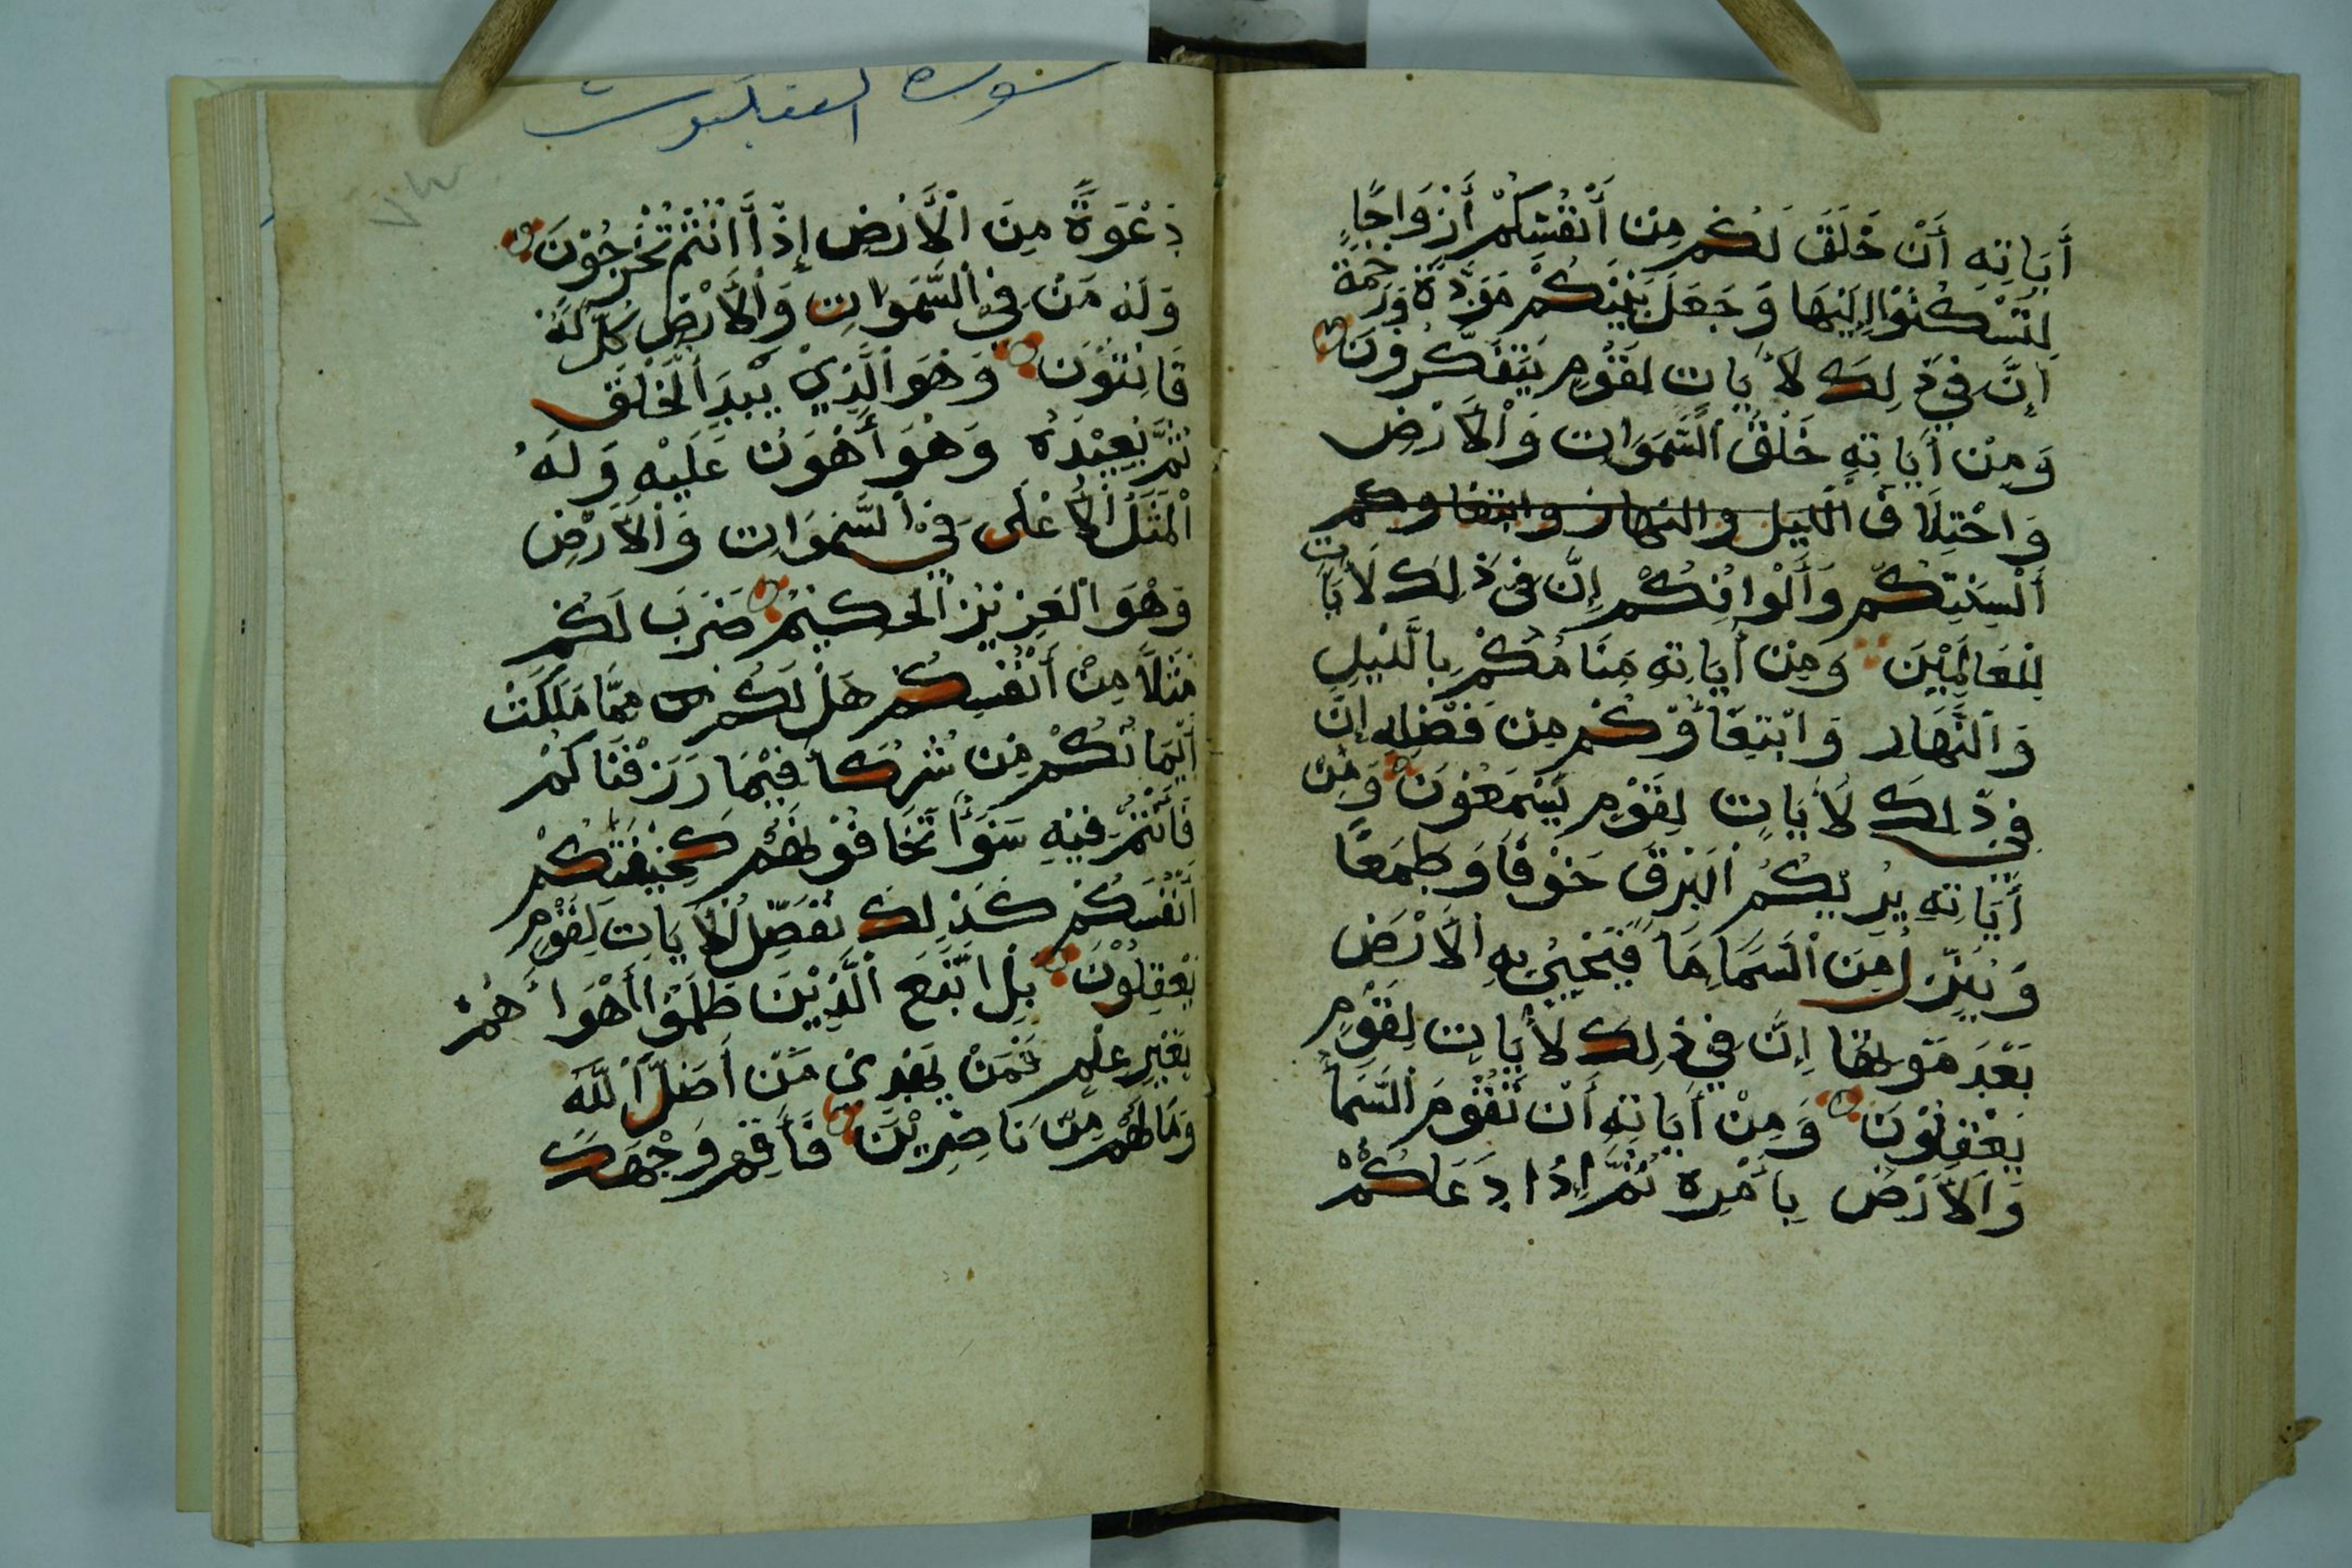 أَيَاتِهِ أَنْ خَلَقَ لَكُم مِنْ أَنْفُسِكُمْ أَزْوَاجًا
لِتَسْكُنُوْا إِلَيْهَا وَجَعَلَ بَيْنَكُم مَوَدَّةً وَرَحْمَةً
إِنَّ فِي ذَلِكَ لَأَيَاتٍ لِقَوْمٍ يَتَفَكَّرُوْنَ
وَمِنْ أَيَاتِهِ خَلْقُ السَّمَوَاتِ وَالْأَرْضِ
وَاخْتِلَاف الليل والنهار وابتغاوكم
أَلْسِنَتِكُمْ وَأَلْوَانِكُمْ إِنَّ فِي ذَلِكَ لَأَيَاتٍ
لِلْعَالَمِيْنَ وَمِنْ أَيَاتِهِ مَنَامُكُمْ بِالَّيْلِ
وَالنَّهَارِ وَابْتِغَاؤُكُمْ مِنْ فَضْلِهِ إِنَّ
فِي ذَلِكَ لَأَيَاتٍ لِقَوْمٍ يَسْمَعُوْنَ وَمِنْ
أَيَاتِهِ يُرِيْكُمُ الْبَرْقَ خَوْفًا وَطَمَعًا
وَيُنَزِّلُ مِنَ السَّمَا مَا فَيُحْيِيْ بِهِ الْأَرْضَ
بَعْدَ مَوْتِهَا إِنَّ فِي ذَلِكَ لَأَيَاتٍ لِقَوْمٍ
يَعْقِلُوْنَ وَمِنْ أَيَاتِهِ أَنْ تَقُوْمَ السَّمَا
وَالْأَرْضُ بِأَمْرِهِ ثُمَّ إِذَا دَعَاكُمْ
سورة العنكبوت
٧٣
دَعْوَةً مِنَ الْأَرْضِ إِذَا أَنْتُمْ تُخْرَجُوْنَ
وَلَهُ مَنْ فِي السَّمَوَاتِ وَالْأَرْضِ كُلٌّ لَهُ
قَانِتُوْنَ وَهُوَ الَّذِيْ يَبْدَ الْخَلْقَ
ثُمَّ يُعِيْدُهُ وَهُوَ أَهْوَنُ عَلَيْهِ وَلَهُ
الْمَثَلُ الْأَعْلَى فِي السَّمَوَاتِ وَالْأَرْضِ
وَهُوَ الْعَزِيْزُ الْحَكِيْمُ ضَرَبَ لَكُمْ
مَثَلًا مِنْ أَنْفُسِكُمْ هَلْ لَكُمْ مِمَّا مَلَكَتْ
أَيْمَانُكُمْ مِنْ شُرَكَا فِيْمَا رَزَقْنَاكُمْ
فَأَنْتُمْ فِيْهِ سَوَأً تَخَافُوْ نَهُمْ كَخِيْفَتِكُمْ
أَنْفُسَكُمْ كَذَلِكَ نُفَصِّلُ الْأَيَاتِ لِقَوْمٍ
يَعْقِلُوْنَ بَلِ اتَّبَعَ الَّذِيْنَ ظَلَمُوْا أَهْوَاءَهُمْ
بِغَيْرِ عِلْمٍ فَمَنْ يَهْدِيْ مَنْ أَضَلَّ اللَّهُ
وَمَا لَهُمْ مِنْ نَاصِرِيْنَ فَأَقِمْ وَجْهَكَ